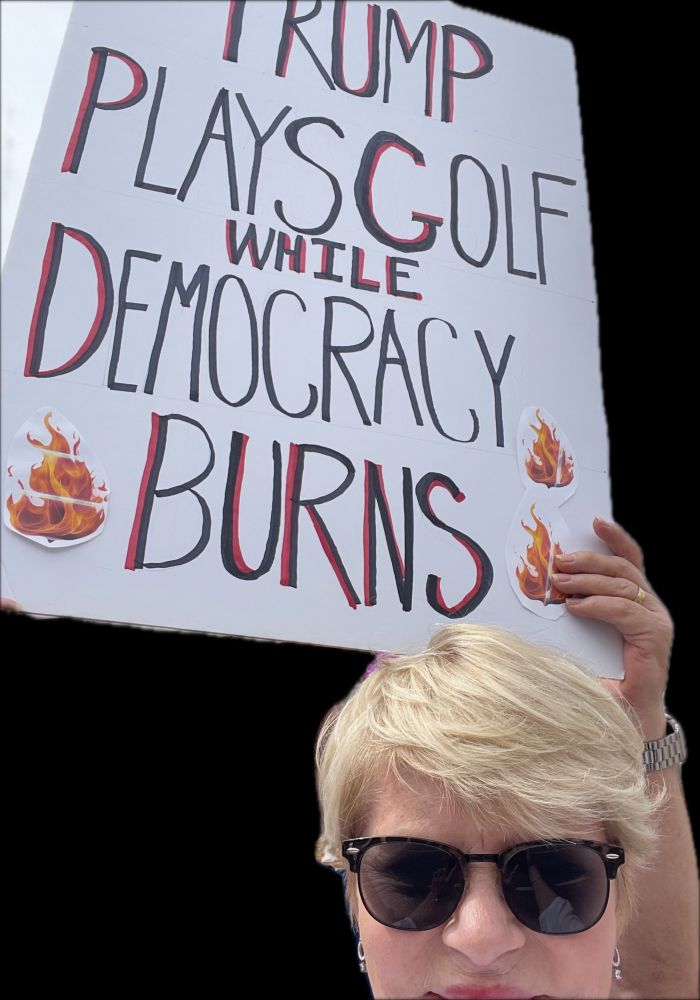 TRUMP
PLAYS GOLF
WHILE
DEMOCRACY
BURNS